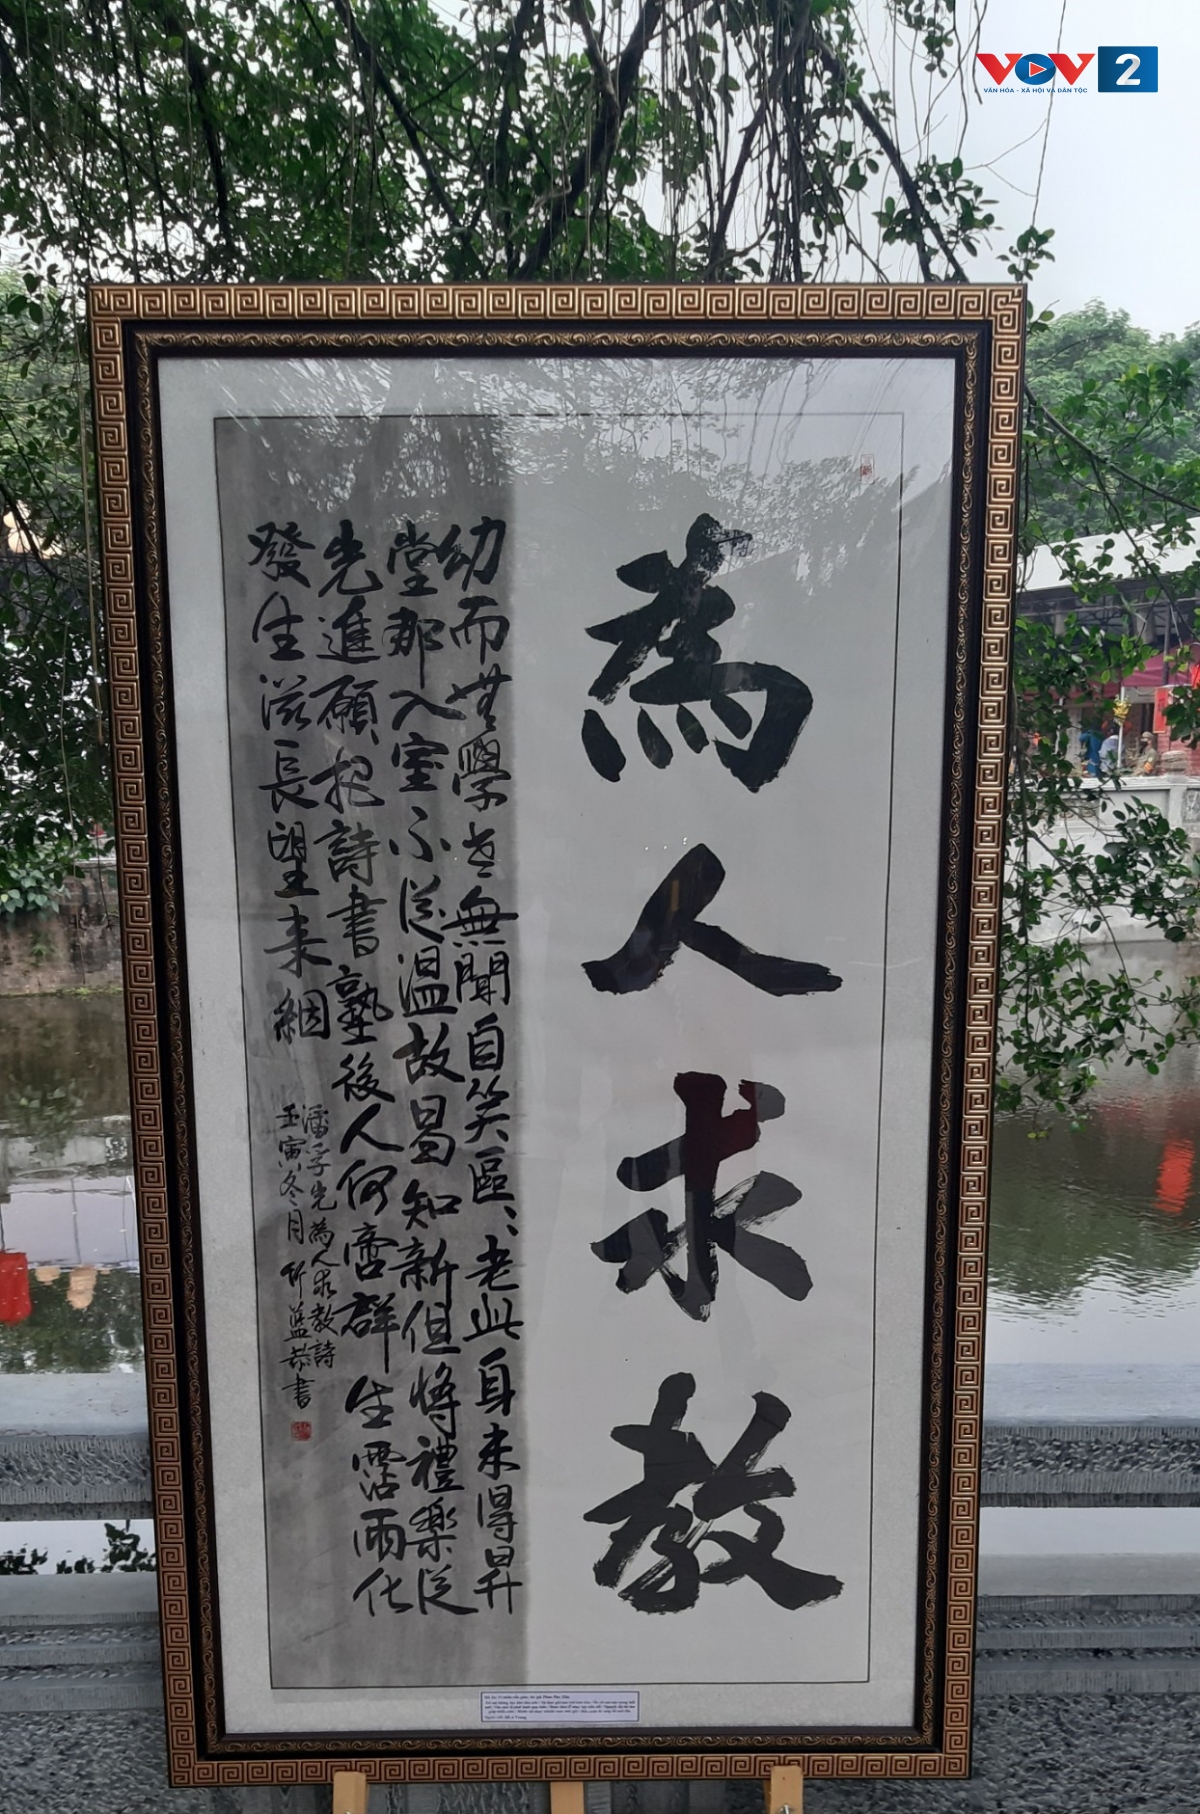 VOV 2
VĂN HÓA - XÃ HỘI VÀ DÂN TỘC
為人求教
幼而無學老無聞自笑區〻老此身未得昇
堂那入室不從溫故曷知新但將禮樂從
先進願把詩書塾後人何啻群生霑雨化
發生滋長望來絪
潘孚先為人求教詩
壬寅冬月竹藍恭書